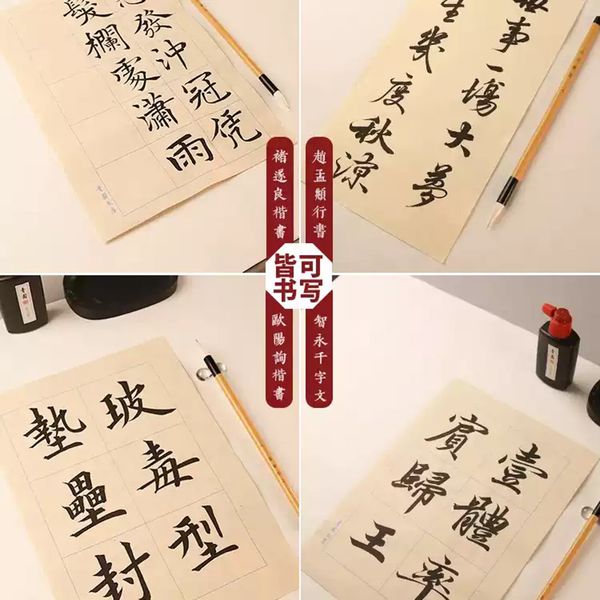 發沖冠凭
髮欄處瀟雨
事一場大夢
生幾度秋涼
褚遂良楷書
趙孟頫行書
皆可
书写
歐陽詢楷書
智永千字文
玻毒型
墊壘封
壹體率
賓歸王